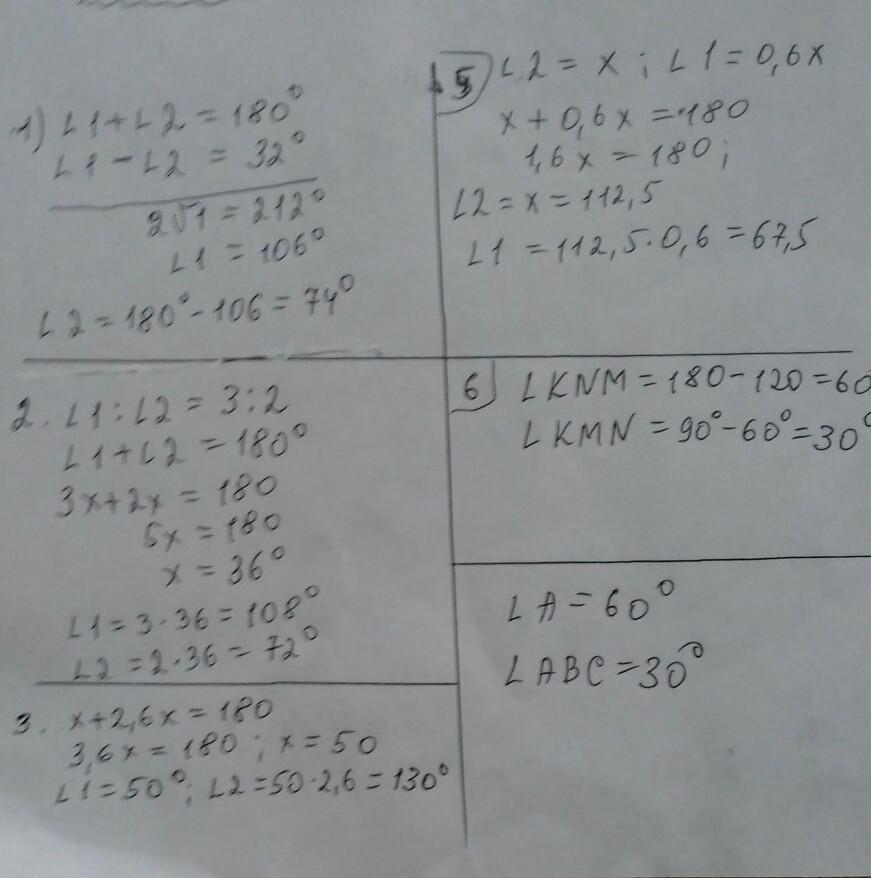 1) ∠1+∠2 = 180°
∠1-∠2 = 32°
2∠1 = 212°
∠1 = 106°
∠2 = 180°-106 = 74°
2. ∠1:∠2 = 3:2
∠1+∠2 = 180°
3x+2x = 180
5x = 180
x = 36°
∠1 = 3·36 = 108°
∠2 = 2·36 = 72°
3. x+2,6x = 180
3,6x = 180 ; x = 50
∠1 = 50°; ∠2 = 50·2,6 = 130°
5) ∠2 = x ; ∠1 = 0,6x
x + 0,6x = 180
1,6x = 180 ;
∠2 = x = 112,5
∠1 = 112,5·0,6 = 67,5
6) ∠KNM = 180-120 = 60
∠KMN = 90°-60° = 30°
∠A = 60°
∠ABC = 30°